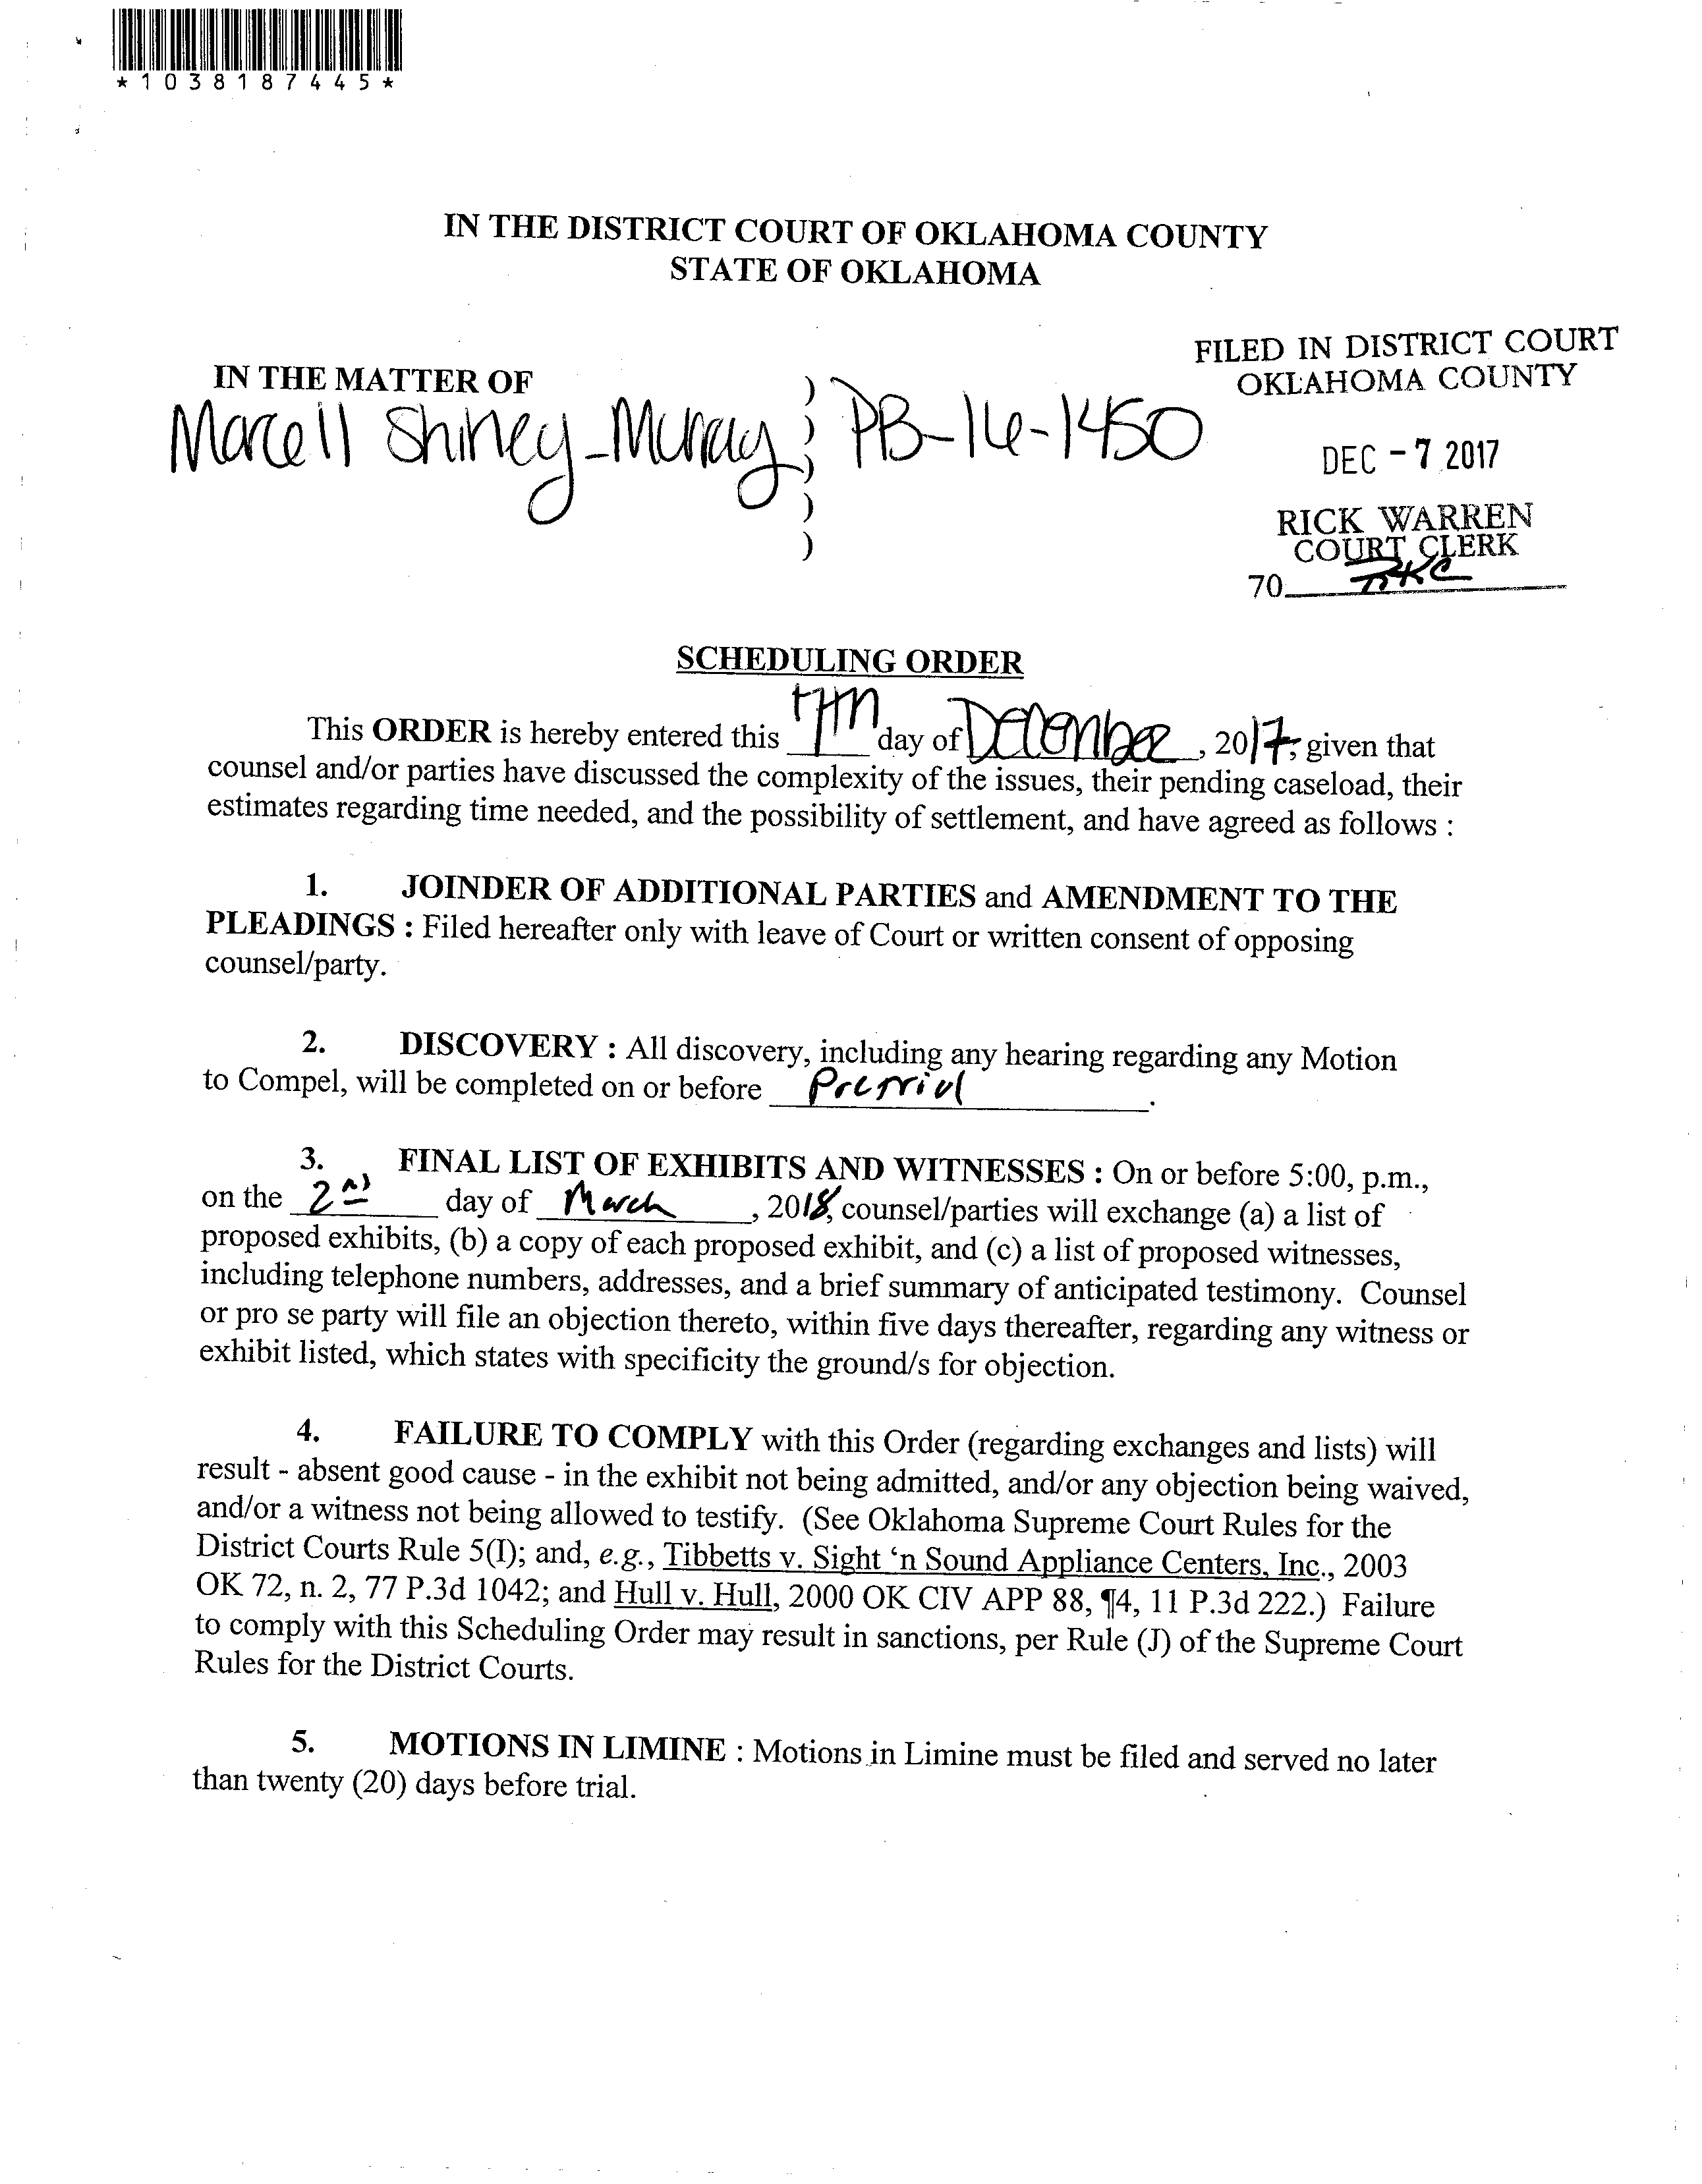 *1038187445*
IN THE DISTRICT COURT OF OKLAHOMA COUNTY
STATE OF OKLAHOMA
FILED IN DISTRICT COURT
OKLAHOMA COUNTY
DEC - 7 2017
RICK WARREN
COURT CLERK
70
IN THE MATTER OF )
Marcell Shiney-Murray ) PB-16-1450
)
)
)
)
SCHEDULING ORDER
This ORDER is hereby entered this 7th day of December, 2017, given that
counsel and/or parties have discussed the complexity of the issues, their pending caseload, their
estimates regarding time needed, and the possibility of settlement, and have agreed as follows :
1. JOINDER OF ADDITIONAL PARTIES and AMENDMENT TO THE
PLEADINGS : Filed hereafter only with leave of Court or written consent of opposing
counsel/party.
2. DISCOVERY : All discovery, including any hearing regarding any Motion
to Compel, will be completed on or before .
3. FINAL LIST OF EXHIBITS AND WITNESSES : On or before 5:00, p.m.,
on the 2nd day of March, 2018, counsel/parties will exchange (a) a list of
proposed exhibits, (b) a copy of each proposed exhibit, and (c) a list of proposed witnesses,
including telephone numbers, addresses, and a brief summary of anticipated testimony. Counsel
or pro se party will file an objection thereto, within five days thereafter, regarding any witness or
exhibit listed, which states with specificity the ground/s for objection.
4. FAILURE TO COMPLY with this Order (regarding exchanges and lists) will
result - absent good cause - in the exhibit not being admitted, and/or any objection being waived,
and/or a witness not being allowed to testify. (See Oklahoma Supreme Court Rules for the
District Courts Rule 5(I); and, e.g., Tibbetts v. Sight ‘n Sound Appliance Centers, Inc., 2003
OK 72, n. 2, 77 P.3d 1042; and Hull v. Hull, 2000 OK CIV APP 88, ¶4, 11 P.3d 222.) Failure
to comply with this Scheduling Order may result in sanctions, per Rule (J) of the Supreme Court
Rules for the District Courts.
5. MOTIONS IN LIMINE : Motions in Limine must be filed and served no later
than twenty (20) days before trial.